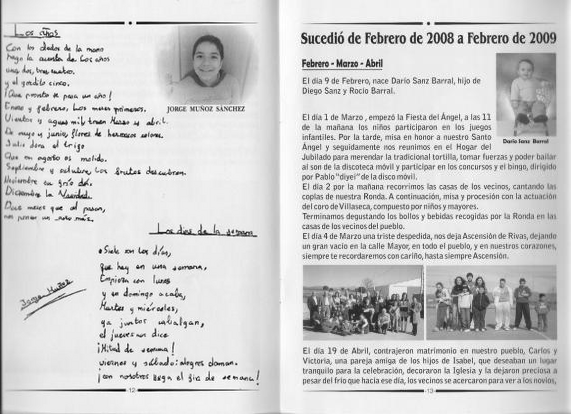 Los años
Con los dedos de la mano
hago la cuenta de los años
uno, dos, tres, cuatro.
y el gordito cinco.
¡Que pronto se pasa un año!
Enero y febrero, los meses primeros.
Vientos y aguas mil, traen Marzo y abril.
De mayo y junio, flores de hermosos colores.
Julio dora el trigo
Que en agosto es molido.
Septiembre y octubre, los frutos descubren.
Noviembre su frío da,
Diciembre la Navidad.
Doce meses que al pasar,
nos ponen un año más.
JORGE MUÑOZ SÁNCHEZ
Los días de la semana
Siete son los días,
que hay en una semana,
Empieza con lunes
y en domingo acaba,
Martes y miércoles,
ya juntos cabalgan,
el jueves nos dice
¡Mitad de semana!
viernes y sábado: alegres claman.
¡con nosotros llega el fin de semana!
Jorge Muñoz
12
Sucedió de Febrero de 2008 a Febrero de 2009
Febrero - Marzo - Abril
El día 9 de Febrero, nace Darío Sanz Barral, hijo de
Diego Sanz y Rocío Barral.
Darío Sanz Barral
El día 1 de Marzo , empezó la Fiesta del Ángel, a las 11
de la mañana los niños participaron en los juegos
infantiles. Por la tarde, misa en honor a nuestro Santo
Ángel y seguidamente nos reunimos en el Hogar del
Jubilado para merendar la tradicional tortilla, tomar fuerzas y poder bailar
al son de la discoteca móvil y participar en los concursos y el bingo, dirigido
por Pablo "diyei" de la disco móvil.
El día 2 por la mañana recorrimos las casas de los vecinos, cantando las
coplas de nuestra Ronda. A continuación, misa y procesión con la actuación
del coro de Villaseca, compuesto por niños y mayores.
Terminamos degustando los bollos y bebidas recogidas por la Ronda en las
casas de los vecinos del pueblo.
El día 4 de Marzo una triste despedida, nos deja Ascensión de Rivas, dejando
un gran vacio en la calle Mayor, en todo el pueblo, y en nuestros corazones,
siempre te recordaremos con cariño, hasta siempre Ascensión.
El día 19 de Abril, contrajeron matrimonio en nuestro pueblo, Carlos y
Victoria, una pareja amiga de los hijos de Isabel, que deseaban un lugar
tranquilo para la celebración, decoraron la Iglesia y la dejaron preciosa a
pesar del frío que hacia ese día, los vecinos se acercaron para ver a los novios,
13